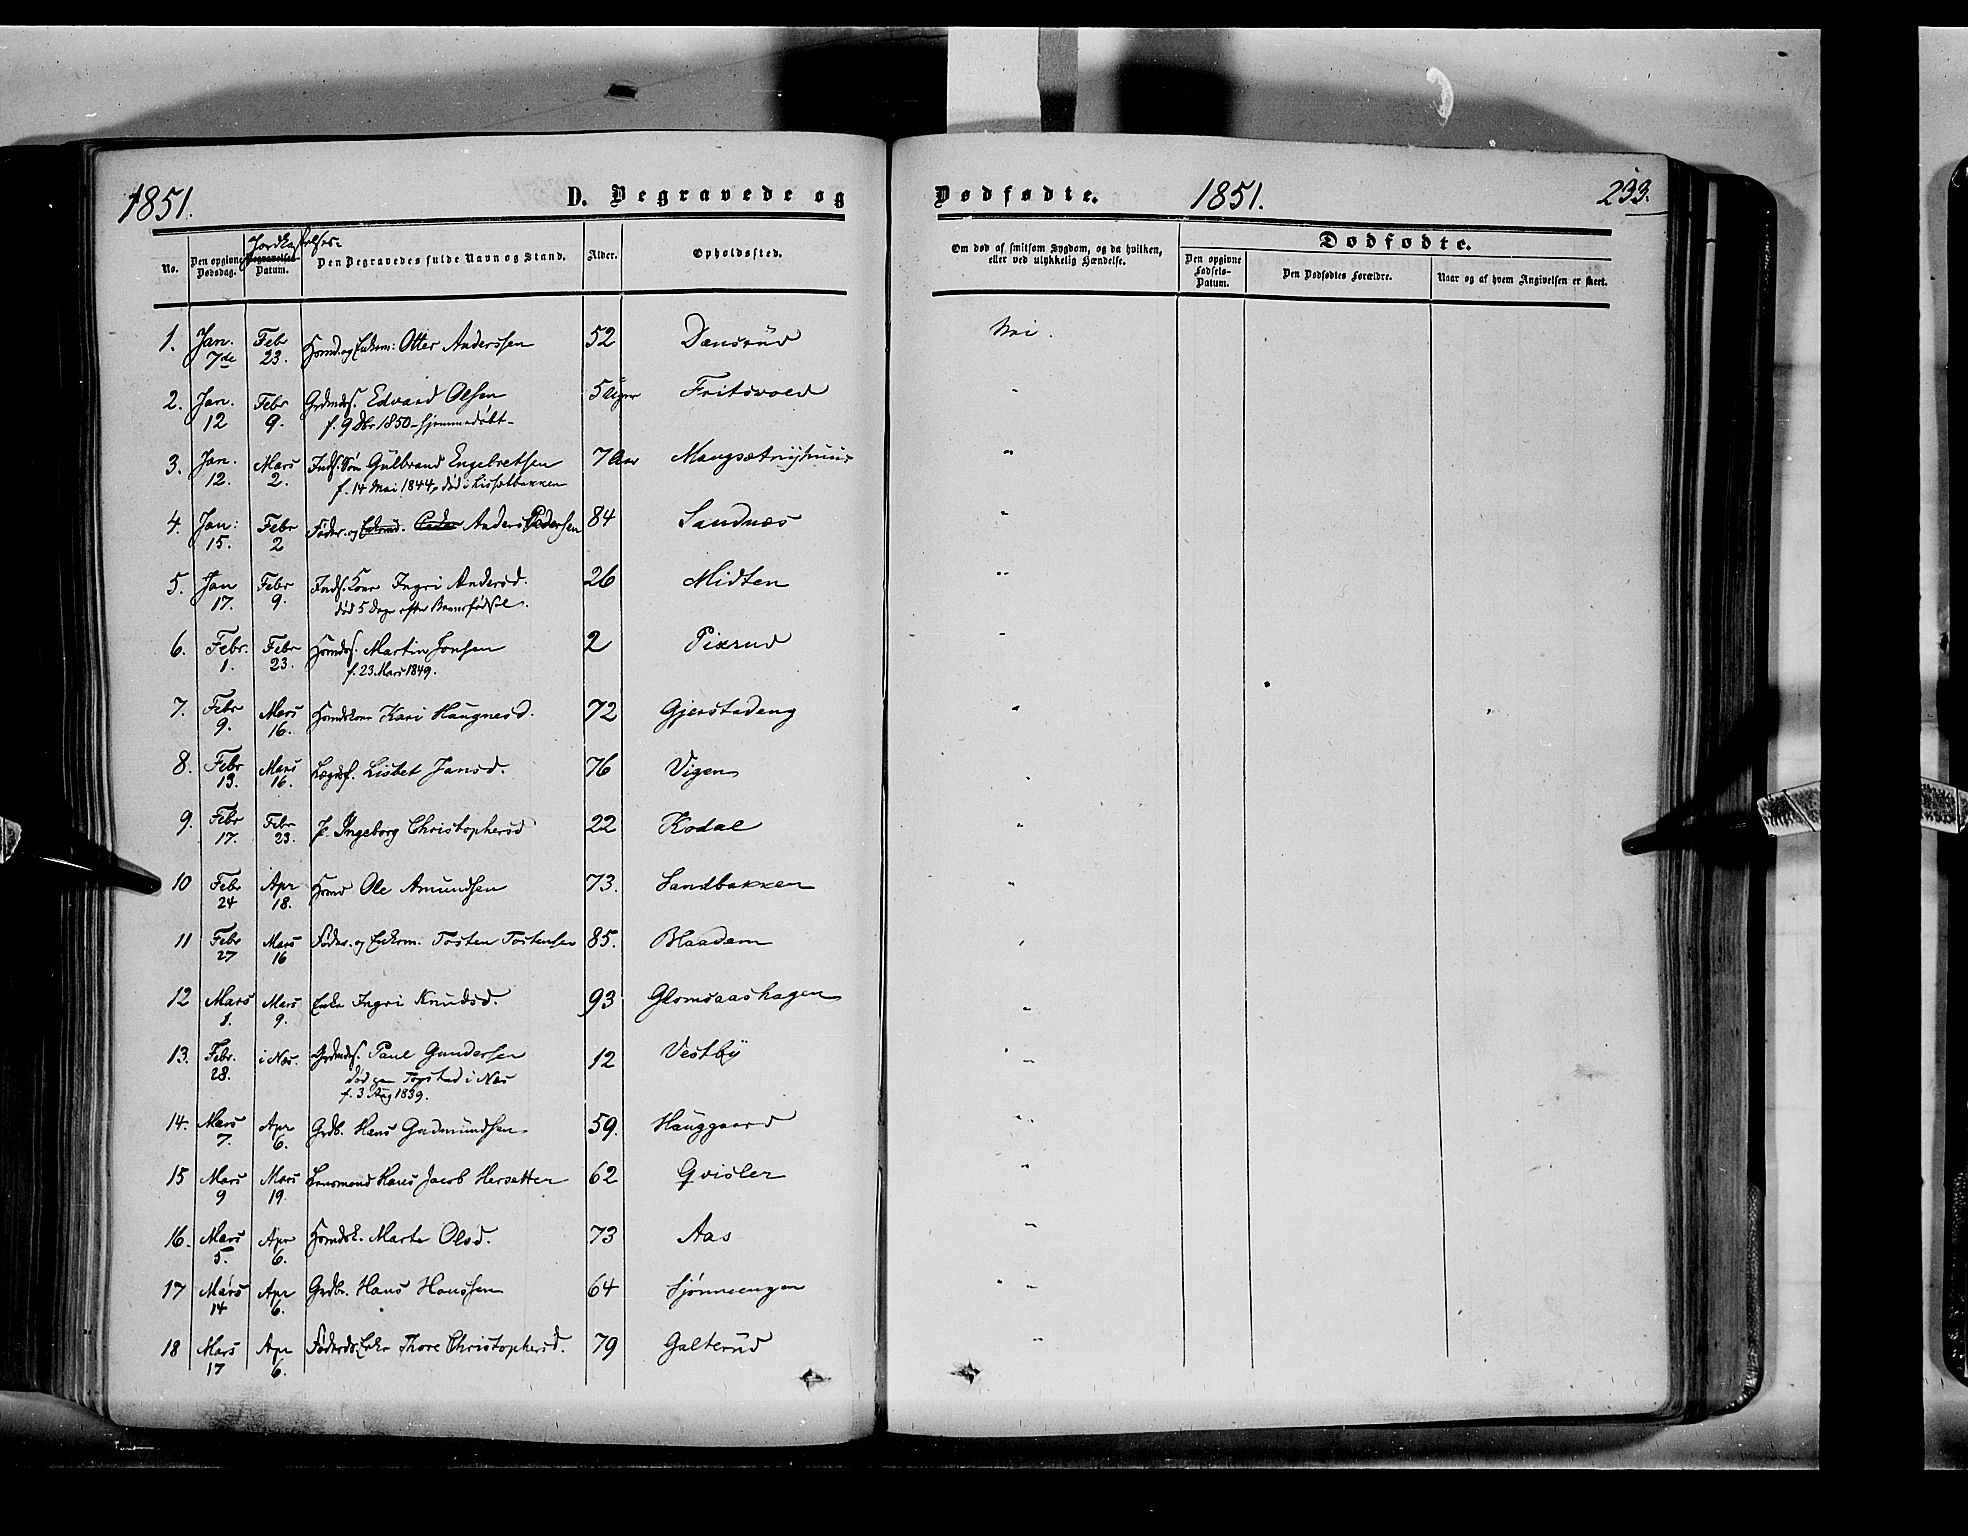 1851.
D. Begravede og
Dødfødte.
1851.
233.
No.
Den opgivne Dødsdag.
Jordkastelses-
Begravelses Datum.
Den Begravedes fulde Navn og Stand.
Alder.
Opholdssted.
Om død af smitsom Sygdom, og da hvilken, eller ved ulykkelig Hændelse.
Dødfødte.
Den opgivne Fødsels-Datum.
Den Dødfødtes Forældre.
Naar og af hvem Angivelsen er skeet.
1. Jan. 7de Feb 23. Huusmd. og Enkem: Otter Anderssen 52 Dansrud Nei.
2. Jan. 12 Febr 9. Grdmds. Edvard Olsen 5 Uger Fritsvold "
f. 9 Dbr 1850 - hjemmedøbt -
3. Jan. 12. Mars 2. Inds. Søn Gulbrand Engebretsen 7 Aar "
f. 14 Mai 1844, død i Lissætbakken
4. Jan: 15. Febr 2 Føder. og Enkemd. Peder Anders Pedersen 84 Sandnæs "
5. Jan 17. Febr 9. Inds. Kone Ingri Andersd. 26 Midten "
død 5 Dage efter Barnefødsel.
6. Febr. 1. Febr 23. Martin Jonsen 2 Pixrud "
f. 23 Mars 1849.
7. Febr 9. Mars 16. Kari Haugnesd. 72 Gjerstadeng "
8. Febr 13. Mars 16. Lægdsl. Lisbet Jansd. 76 Vigen "
9. Febr 17. Febr 23. P. Ingeborg Christophersd 22 Kodal "
10 Febr 24 Apr 18. Huusmd Ole Amundsen 73. Sandbakken "
11 Febr 27 Mars 16 Føder. og Enkem. Tosten Tostensen 85. Blaadam "
12 Mars 1. Mars 9. Enke Ingri Knudsd. 93 Glomsaashagen "
13. Febr. 28. i Næs. Grdmds. Paul Gundersen 12 Vestby "
død paa Togstad i Næs
f. 3 Aug 1839.
14. Mars 7. Apr 6. Grdb. Hans Gudmundsen 59. Hauggaard "
15 Mars 9 Mars 19. Lensmand Hans Jacob Hersetter 62 Qvisler "
16. Mars 5. Apr 6. Marte Olsd. 73 Aas "
17 Mars 14 Apr 6. Grdbr. Hans Hanssen 64 Sjønneengen "
18 Mars 17 Apr 6. Føderds. Enke Thore Christophersd. 79 Galterud "